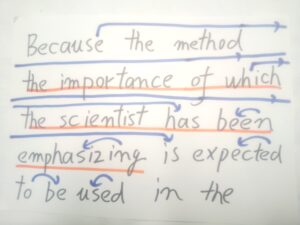 Because the method
the importance of which
the scientist has been
emphasizing is expected
to be used in the